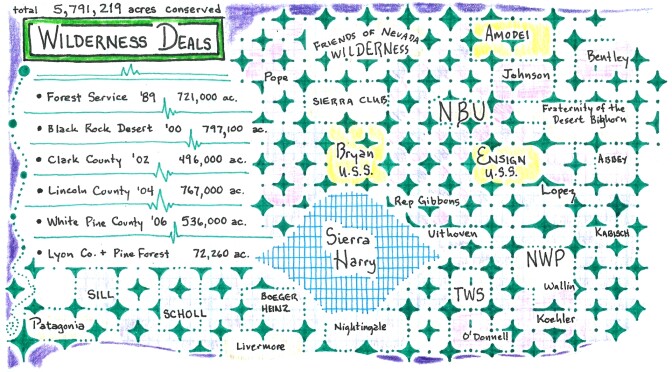 total 5,791,219 acres conserved
WILDERNESS DEALS
• Forest Service '89 721,000 ac.
• Black Rock Desert '00 797,100 ac.
• Clark County '02 496,000 ac.
• Lincoln County '04 767,000 ac.
• White Pine County '06 536,000 ac.
• Lyon Co. + Pine Forest 72,260 ac.
FRIENDS OF NEVADA
WILDERNESS
AMODEI
Bentley
Pope
Johnson
SIERRA CLUB
NBU
Fraternity of the
Desert Bighorn
Bryan
U.S.S.
ENSIGN
U.S.S.
ABBEY
Lopez
Rep Gibbons
Uithoven
KABISCH
Sierra
Harry
NWP
SILL
SCHOLL
BOEGER
HEINZ
TWS
Wallin
Koehler
Patagonia
Nightingale
O'Donnell
Livermore